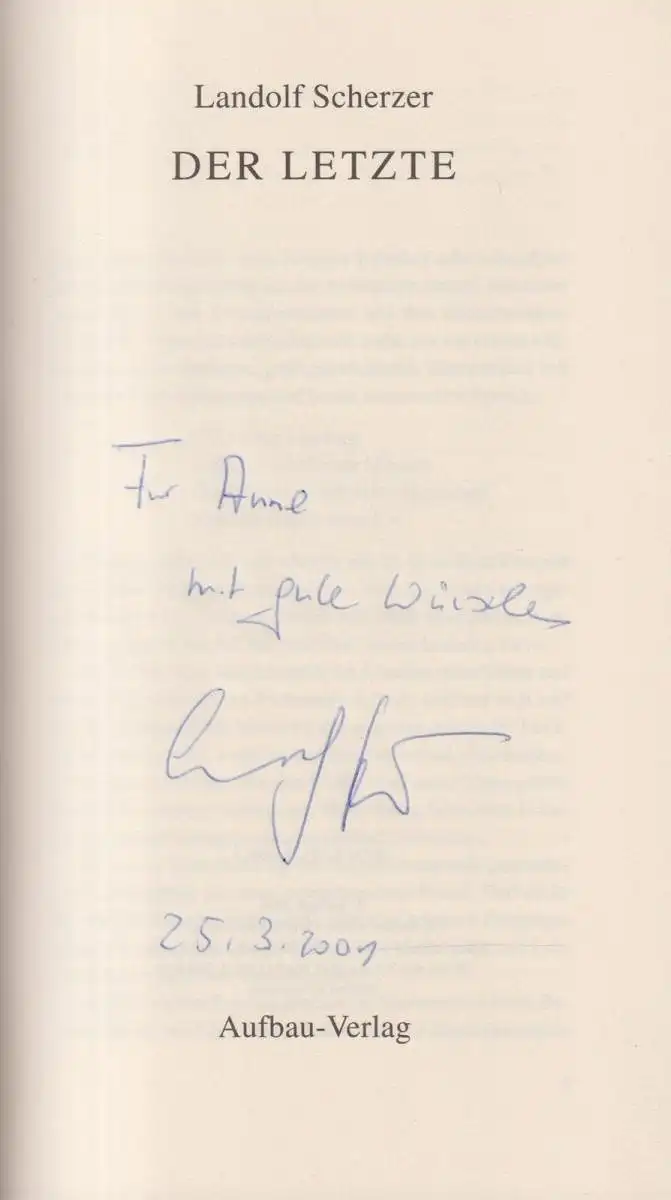 Landolf Scherzer
DER LETZTE
Für Anne
mit gute Wünsche
25.3.2001
Aufbau-Verlag